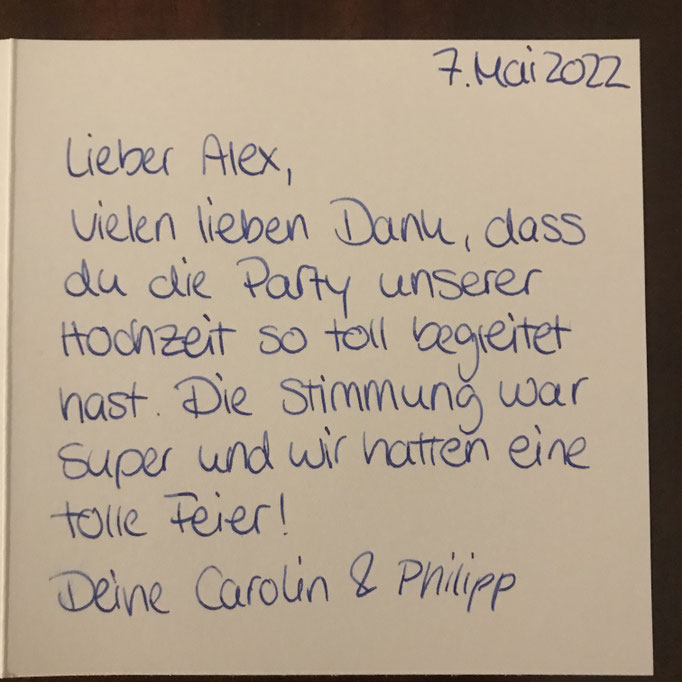 7. Mai 2022
Lieber Alex,
vielen lieben Dank, dass
du die Party unserer
Hochzeit so toll begleitet
hast. Die Stimmung war
super und wir hatten eine
tolle Feier!
Deine Carolin & Philipp